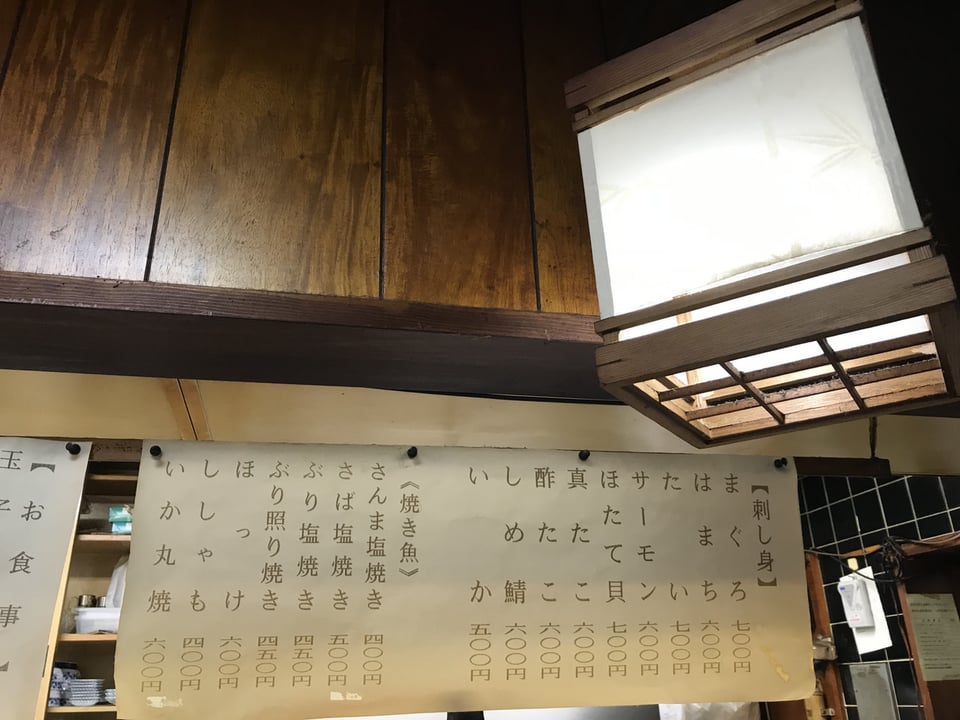 【刺し身】
まぐろ 七〇〇円
はまち 六〇〇円
たい 七〇〇円
サーモン 六〇〇円
ほたて貝 七〇〇円
真たこ 六〇〇円
酢たこ 六〇〇円
しめ鯖 六〇〇円
いか 五〇〇円
《焼き魚》
さんま塩焼き 四〇〇円
さば塩焼き 五〇〇円
ぶり塩焼き 四五〇円
ぶり照り焼き 四五〇円
ほっけ 六〇〇円
ししゃも 四〇〇円
いか丸焼 六〇〇円
【お食事】
玉子